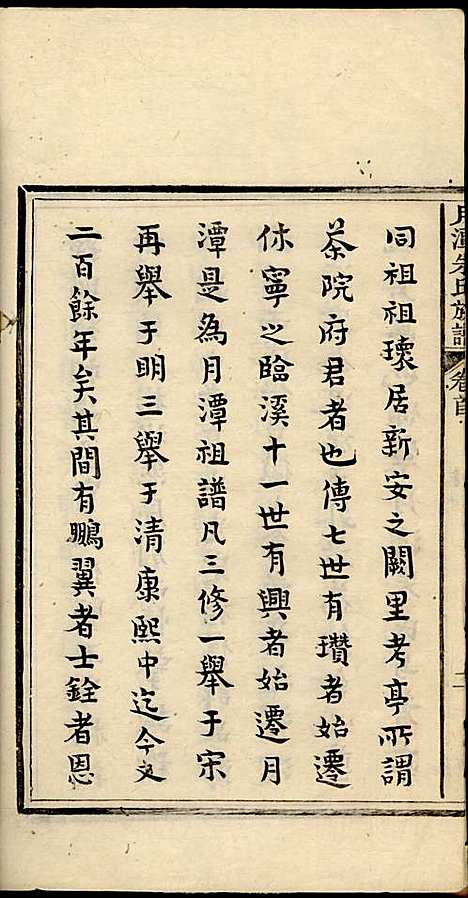 月潭朱氏族譜
卷首
二
同祖祖瓌居新安之闕里考亭所謂
茶院府君者也傳七世有瓚者始遷
休寧之臨溪十一世有興者始遷月
潭是為月潭祖譜凡三修一舉于宋
再舉于明三舉于清康熙中迄今又
二百餘年矣其間有鵬翼者士銓者恩